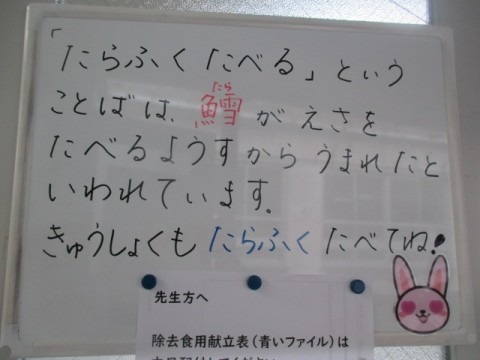 「たらふく たべる」という
たら
ことばは、鱈がえさを
たべるようすから うまれたと
いわれています。
きゅうしょくも たらふく たべてね!
先生方へ
除去食用献立表(青いファイル)は